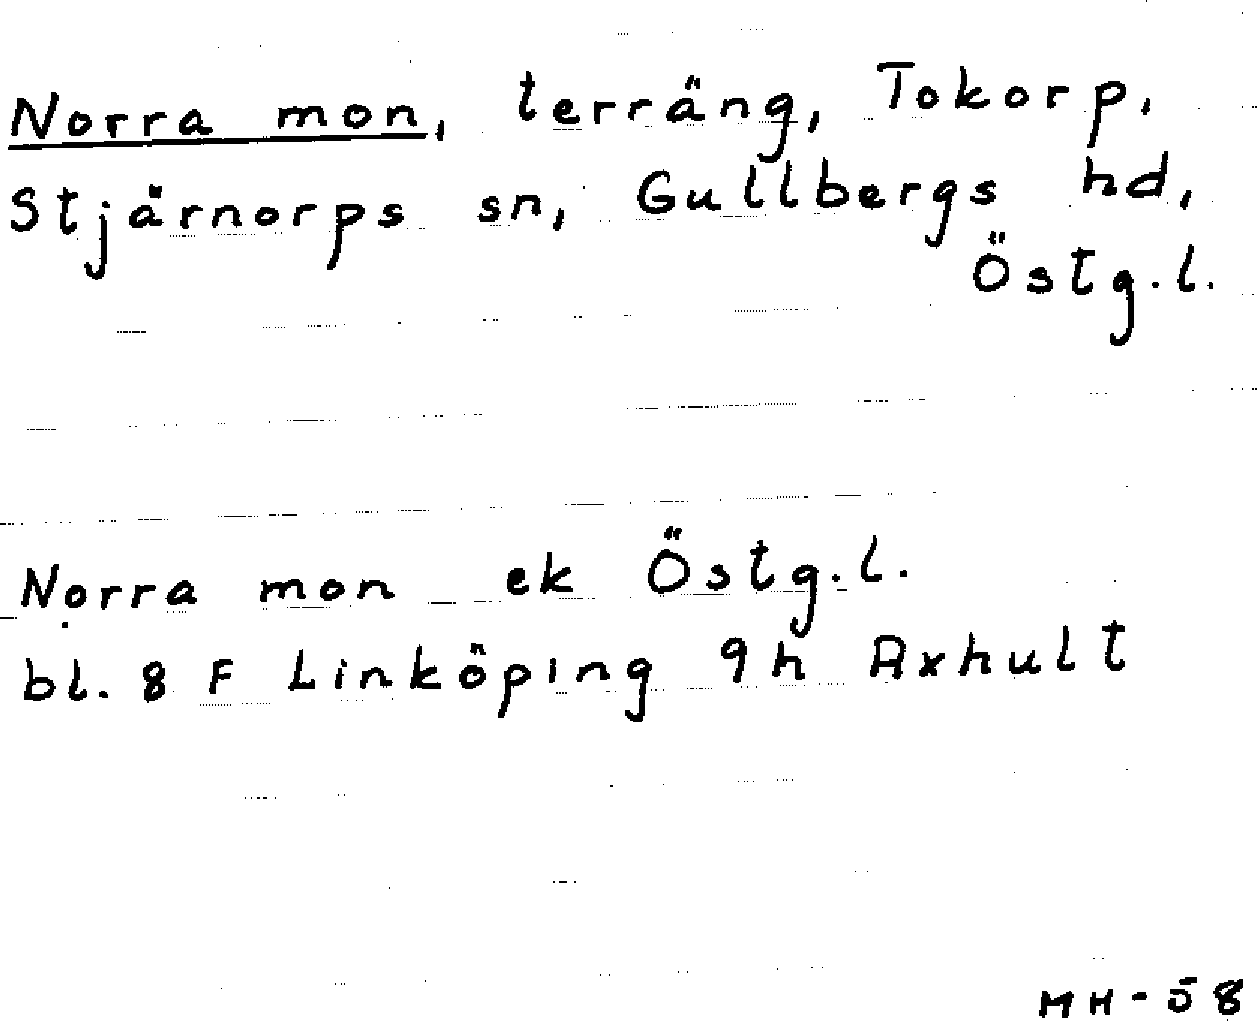 Norra mon, terräng, Tokorp,
Stjärnorps sn, Gullbergs hd,
Östg.l.
Norra mon ek Östg.l.
bl. 8 F Linköping 9h Axhult
MH-58